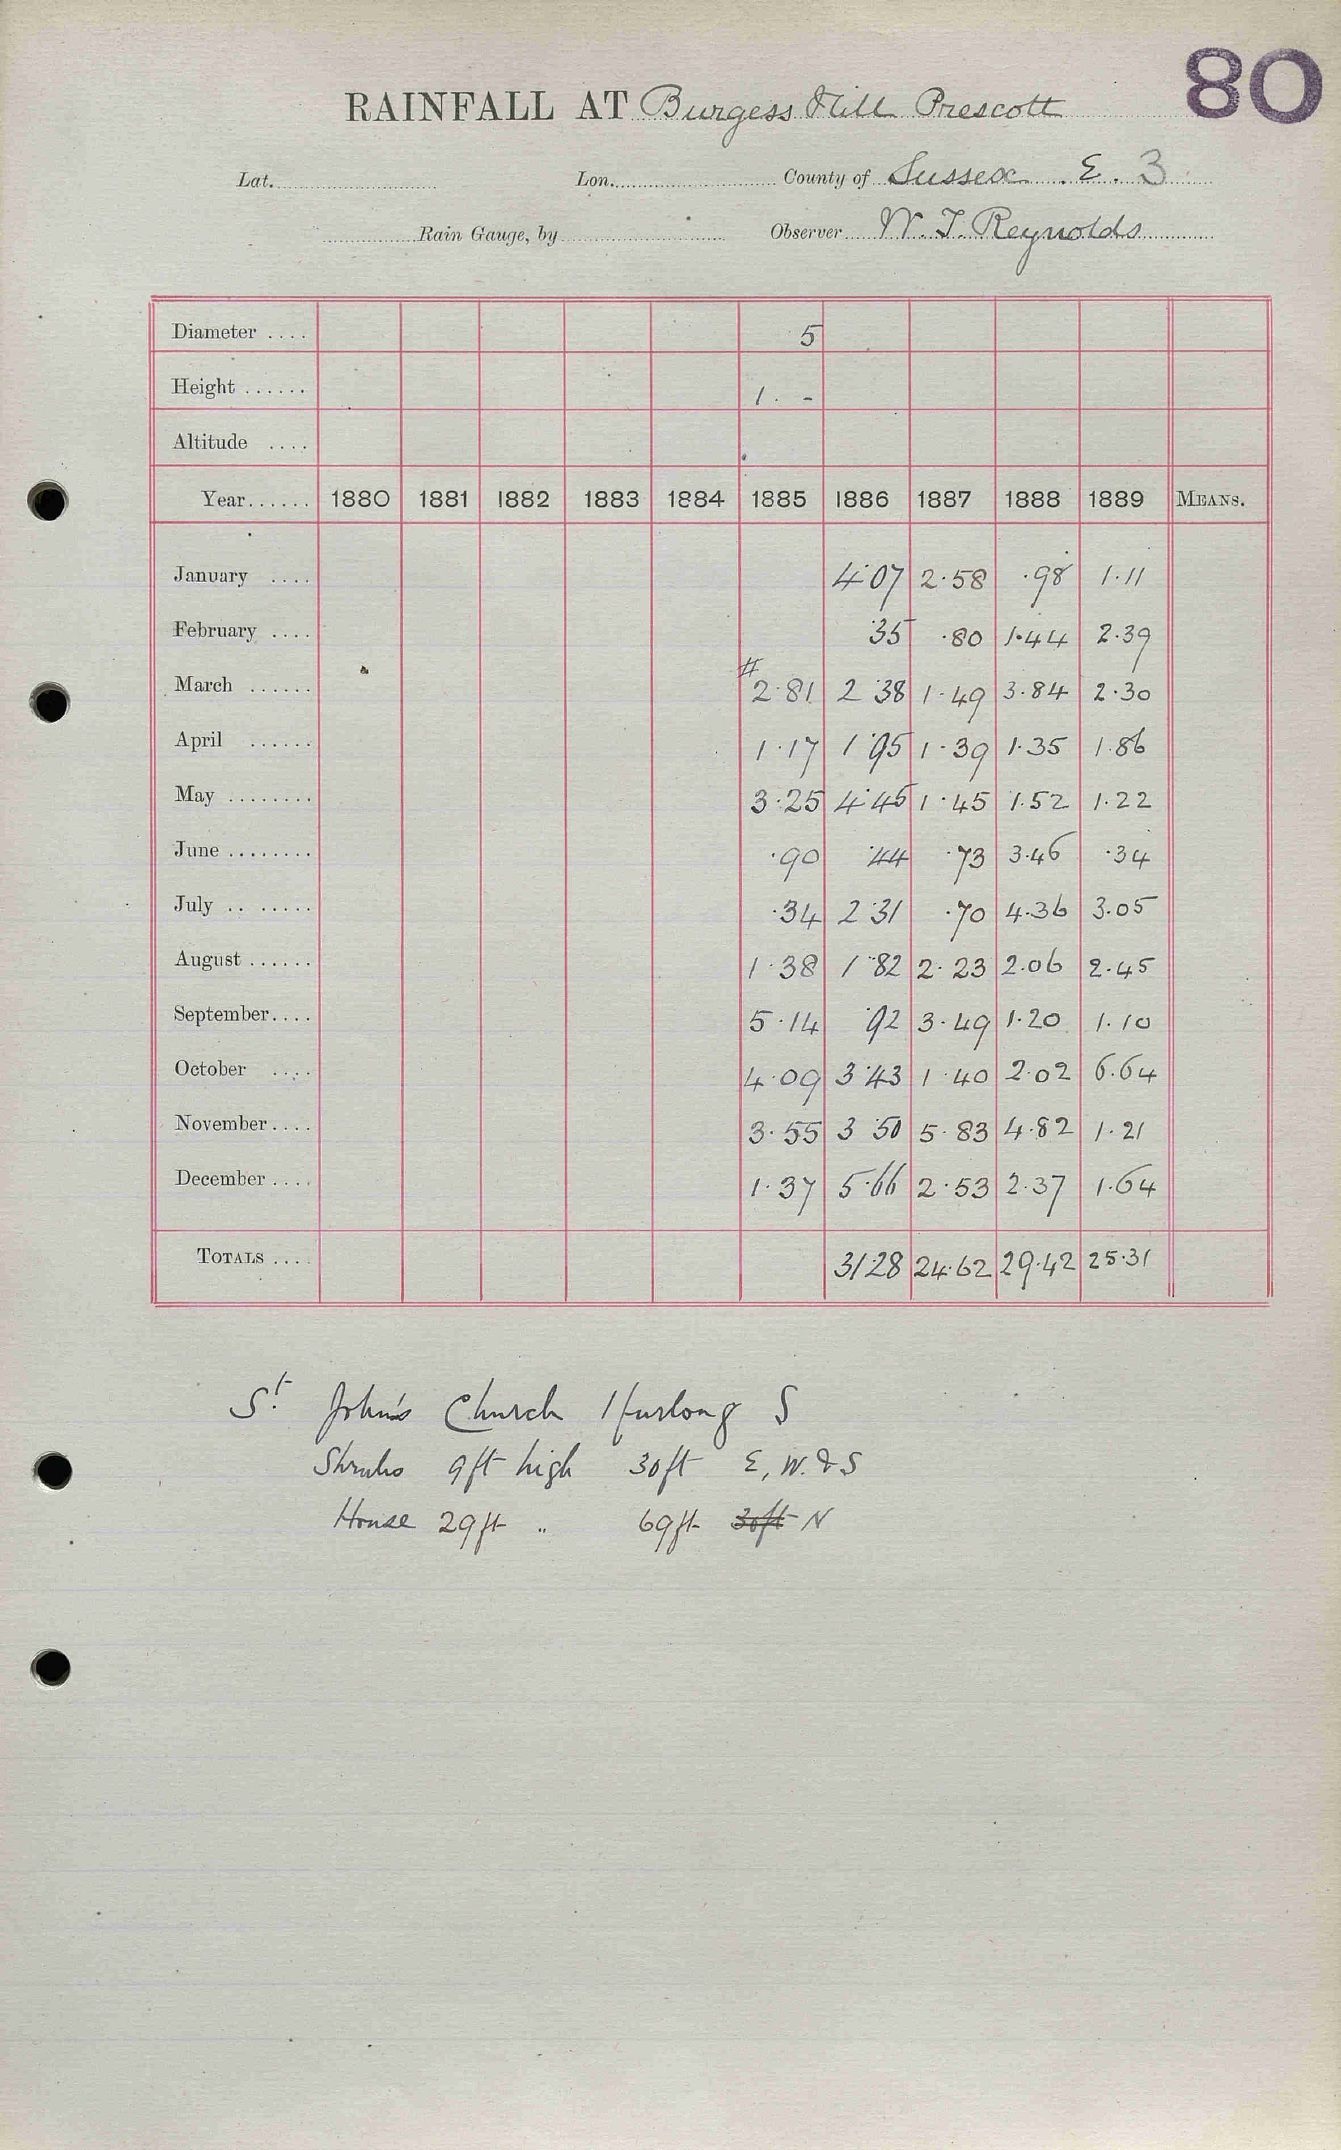 80
RAINFALL AT Burgess Hill Prescott
Lat. Lon. County of Sussex E. 3
Rain Gauge, by Observer W. J. Reynolds
Diameter .... 5
Height ...... 1. -
Altitude ....
Year...... 1880 1881 1882 1883 1884 1885 1886 1887 1888 1889 MEANS.
January .... 4.07 2.58 .98 1.11
February .... .35 .80 1.44 2.39
March ...... # 2.81 2.38 1.49 3.84 2.30
April ...... 1.17 1.95 1.39 1.35 1.86
May ........ 3.25 4.45 1.45 1.52 1.22
June ........ .90 .44 .73 3.46 .34
July .. ..... .34 2.31 .70 4.36 3.05
August ...... 1.38 1.82 2.23 2.06 2.45
September.... 5.14 .92 3.49 1.20 1.10
October .... 4.09 3.43 1.40 2.02 6.64
November.... 3.55 3.50 5.83 4.82 1.21
December .... 1.37 5.66 2.53 2.37 1.64
TOTALS .... 31.28 24.62 29.42 25.31
St. John's Church 1 furlong S
Shrubs 9ft high 30ft E, W. & S
House 29ft " 69ft 30ft N